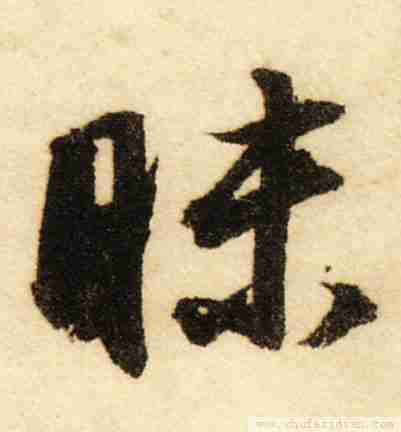 昧
www.shufazidian.com